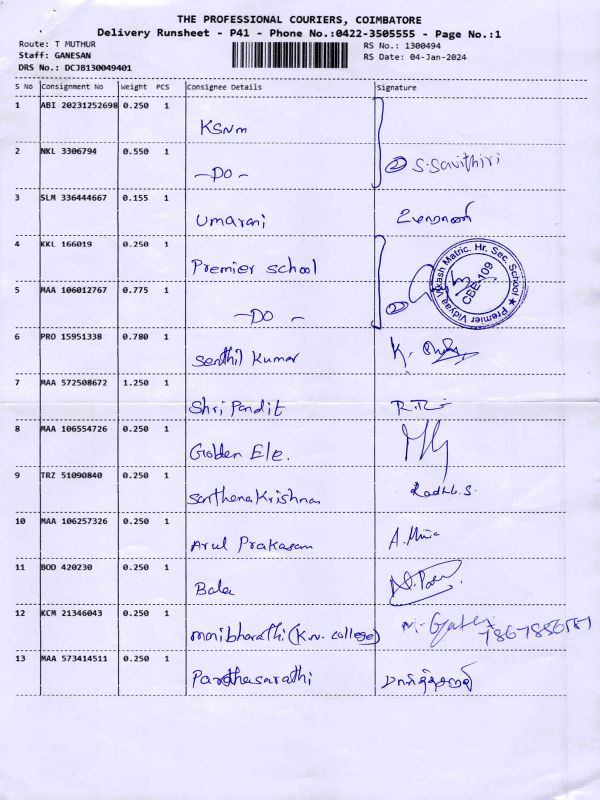 THE PROFESSIONAL COURIERS, COIMBATORE
Delivery Runsheet - P41 - Phone No.:0422-3505555 - Page No.:1
Route: T MUTHUR RS No.: 1300494
Staff: GANESAN RS Date: 04-Jan-2024
DRS No.: DCJB130049401
S No Consignment No Weight PCS Consignee Details Signature
1 ABI 20231252698 0.250 1
KSNM
2 NKL 3306794 0.550 1
-DO- ② S.Savithiri
3 SLM 336444667 0.155 1
Umarani உமாராணி
4 KKL 166019 0.250 1
Premier school
Premier Vidyaa Vikash Matric. Hr. Sec. School ★
CBE-109
5 MAA 106012767 0.775 1
-DO- ②
6 PRO 15951338 0.780 1
Senthil Kumar K.
7 MAA 572508672 1.250 1
Shri Pandit
8 MAA 106554726 0.250 1
Golden Ele.
9 TRZ 51090840 0.250 1
Santhana Krishnan
10 MAA 106257326 0.250 1
Arul Prakasam A.
11 BOD 420230 0.250 1
Bala
12 KCM 21346043 0.250 1
Manibharathi (K.N. College)
13 MAA 573414511 0.250 1
Parthasarathi பார்த்தசாரதி